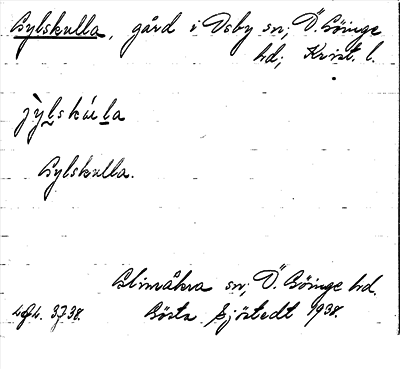 Gylskulla, gård i Osby sn; Ö. Göinge
hd; Krist. l.
jỳlskúla
Gylskulla.
Glimåkra sn; Ö. Göinge hd.
Gösta Sjöstedt 1938.